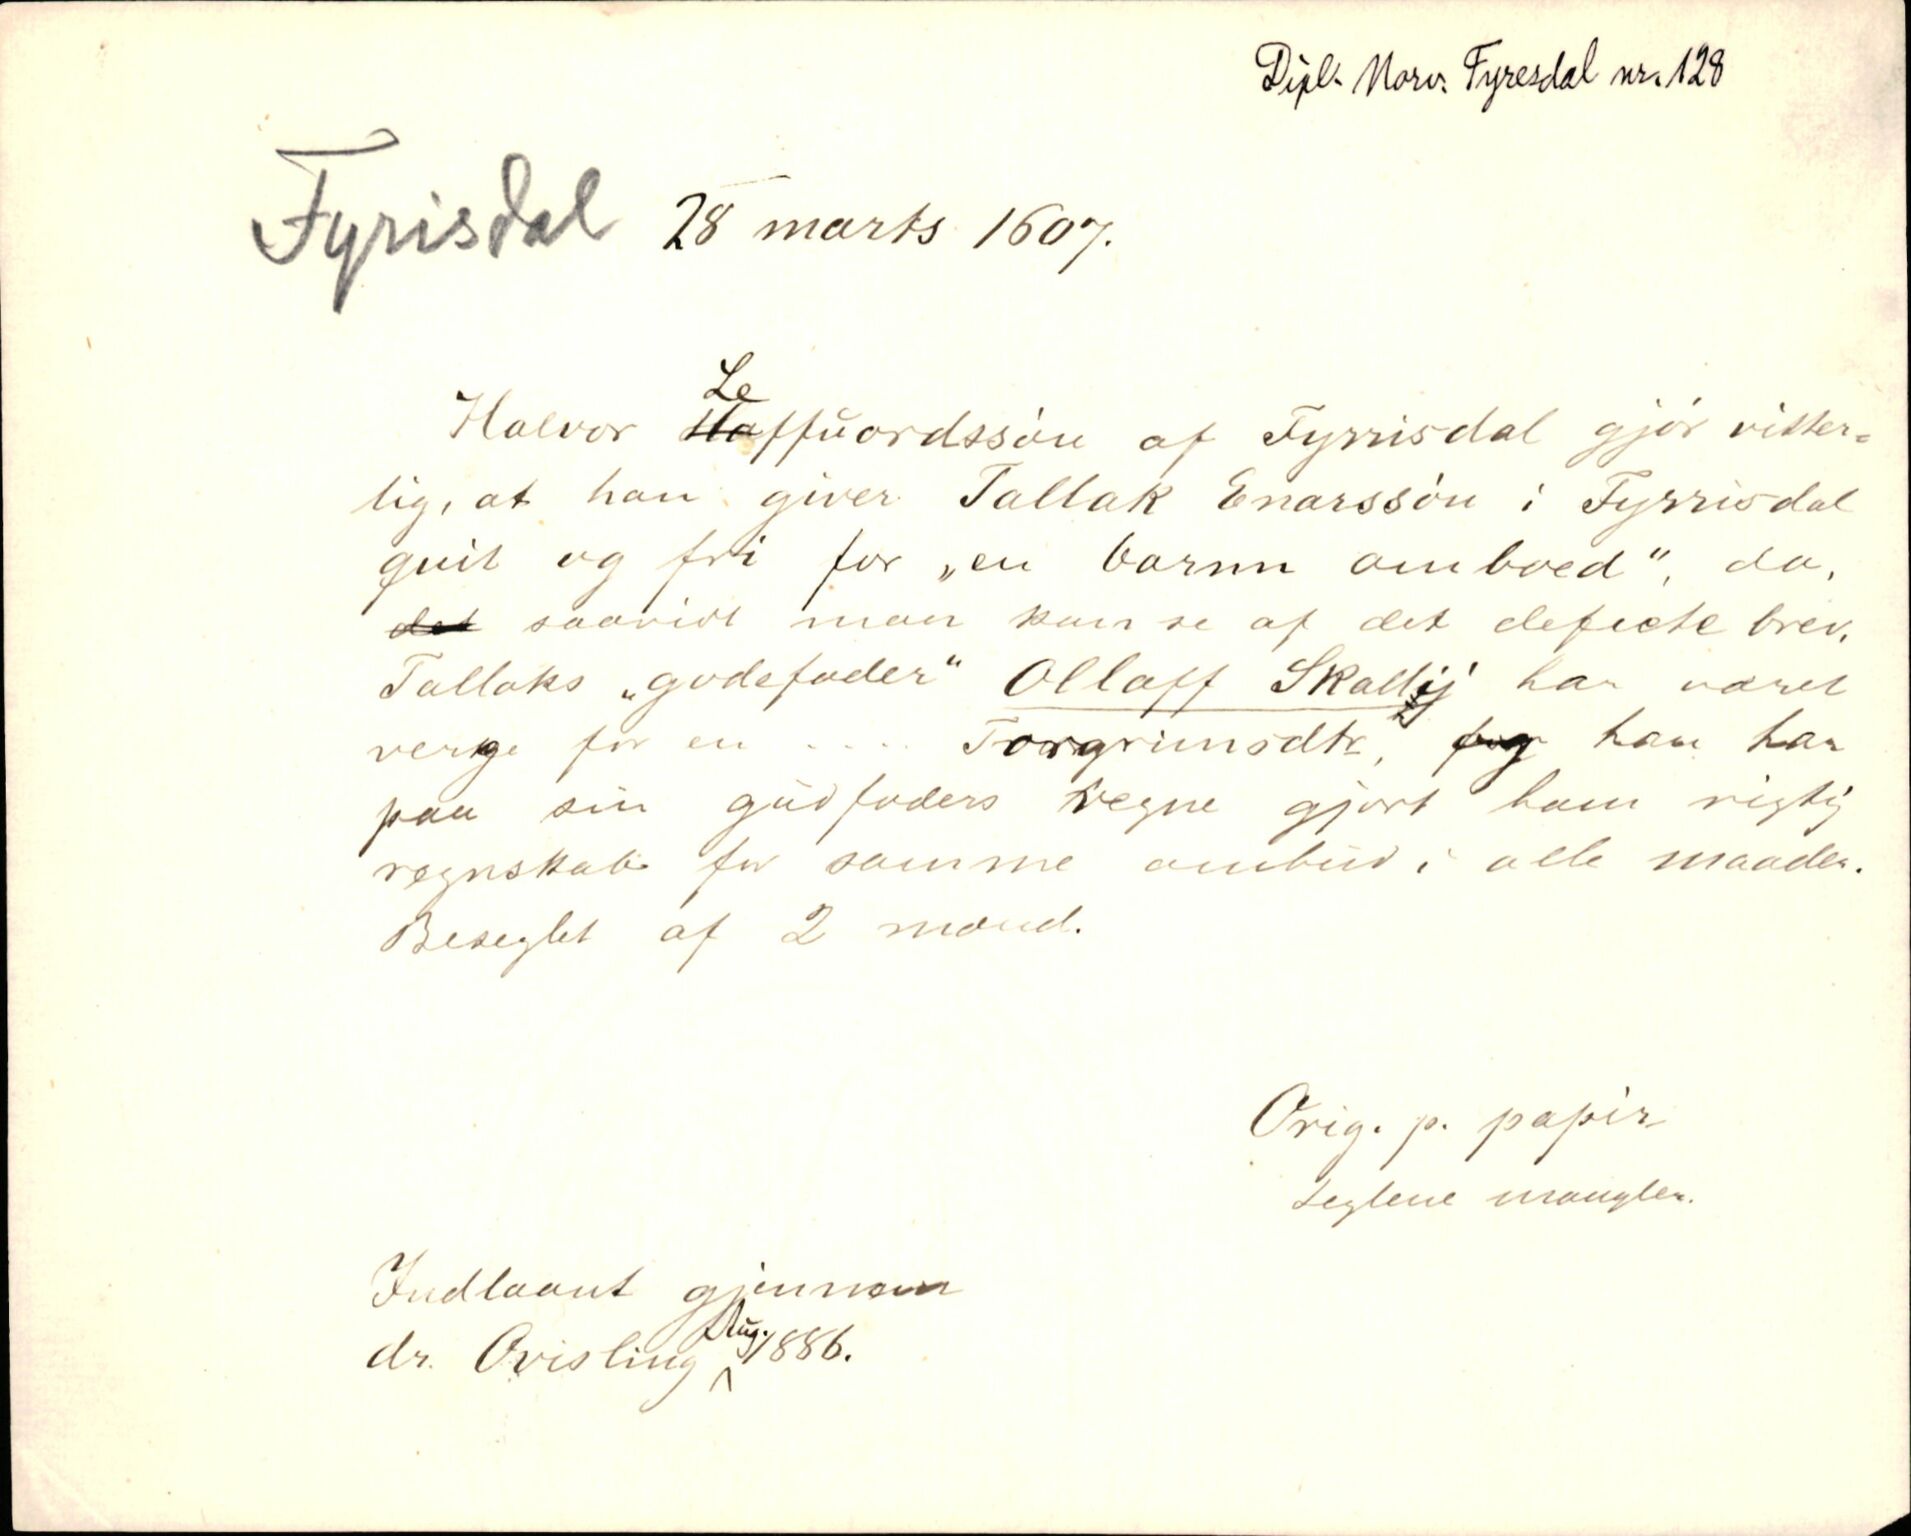 Dipl. Norv. Fyresdal nr. 128
Fyrisdal 28 marts 1607.
Le
Halvor Haffuordssøn af Fyrrisdal gjør vitter-
lig, at han giver Tallak Enarssøn i Fyrrisdal
quit og fri for „en barnn amboed", da,
det saavidt man kan se af det defecte brev,
Tallaks „godefader" Ollaff Skallij har været
verge for en .... Torgrimsdtr, og han har
paa sin gudfaders vegne gjort ham rigtig
regnskab for samme ombud i alle maader.
Beseglet af 2 mænd.
Orig. p. papir
Seglene mangler.
Indlaant gjennem
dr. Qvisling Aug. 1886.